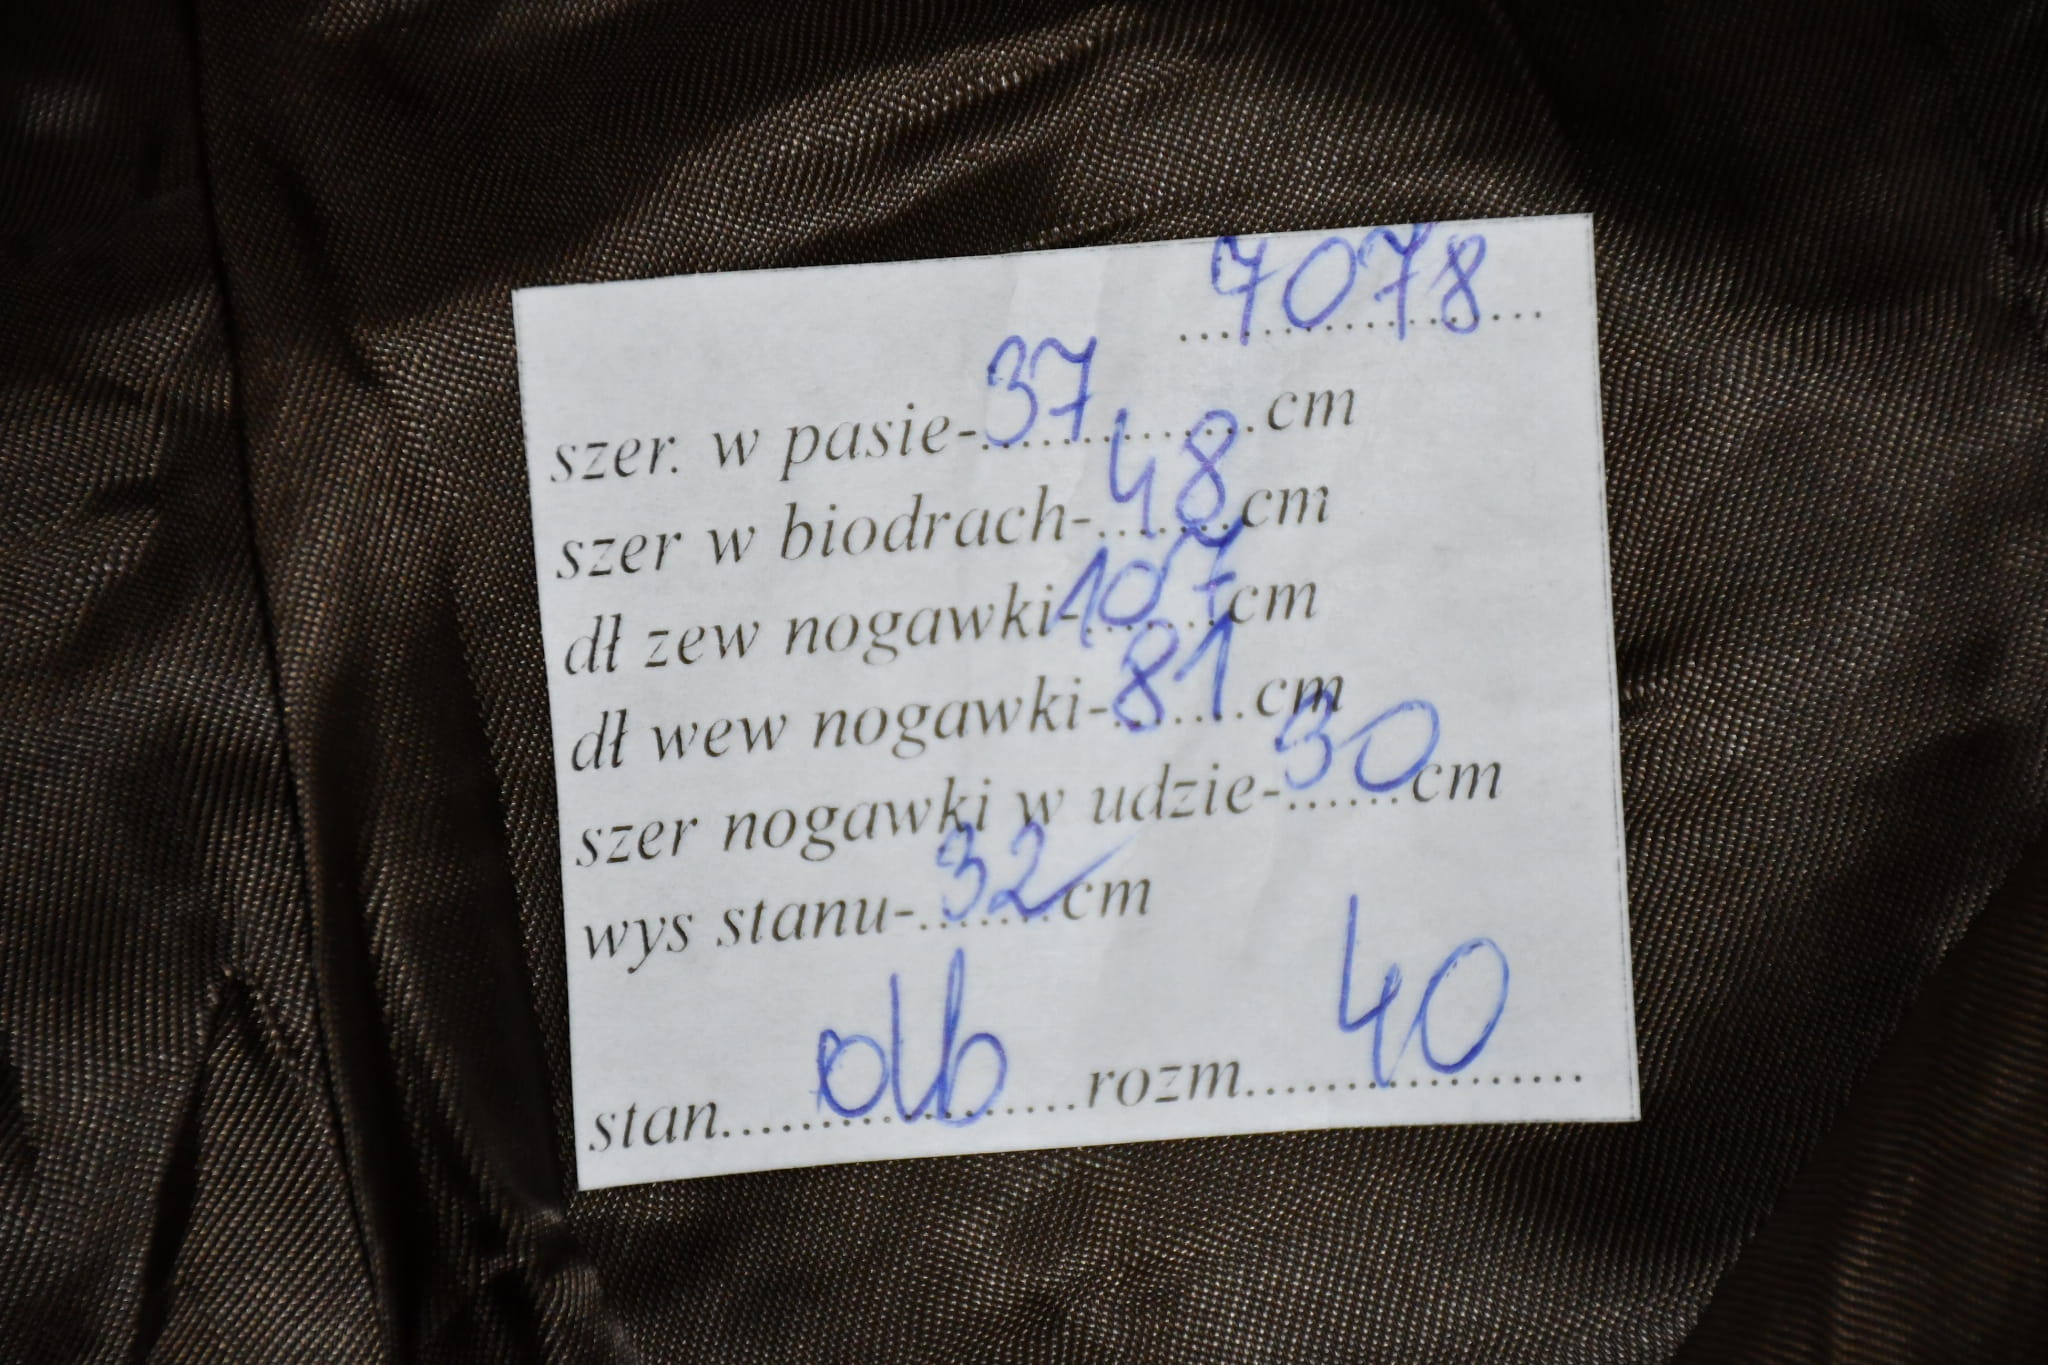 7078
szer. w pasie-37cm
szer w biodrach-48cm
dł zew nogawki-107cm
dł wew nogawki-81cm
szer nogawki w udzie-30cm
wys stanu-32cm
stan db rozm 40